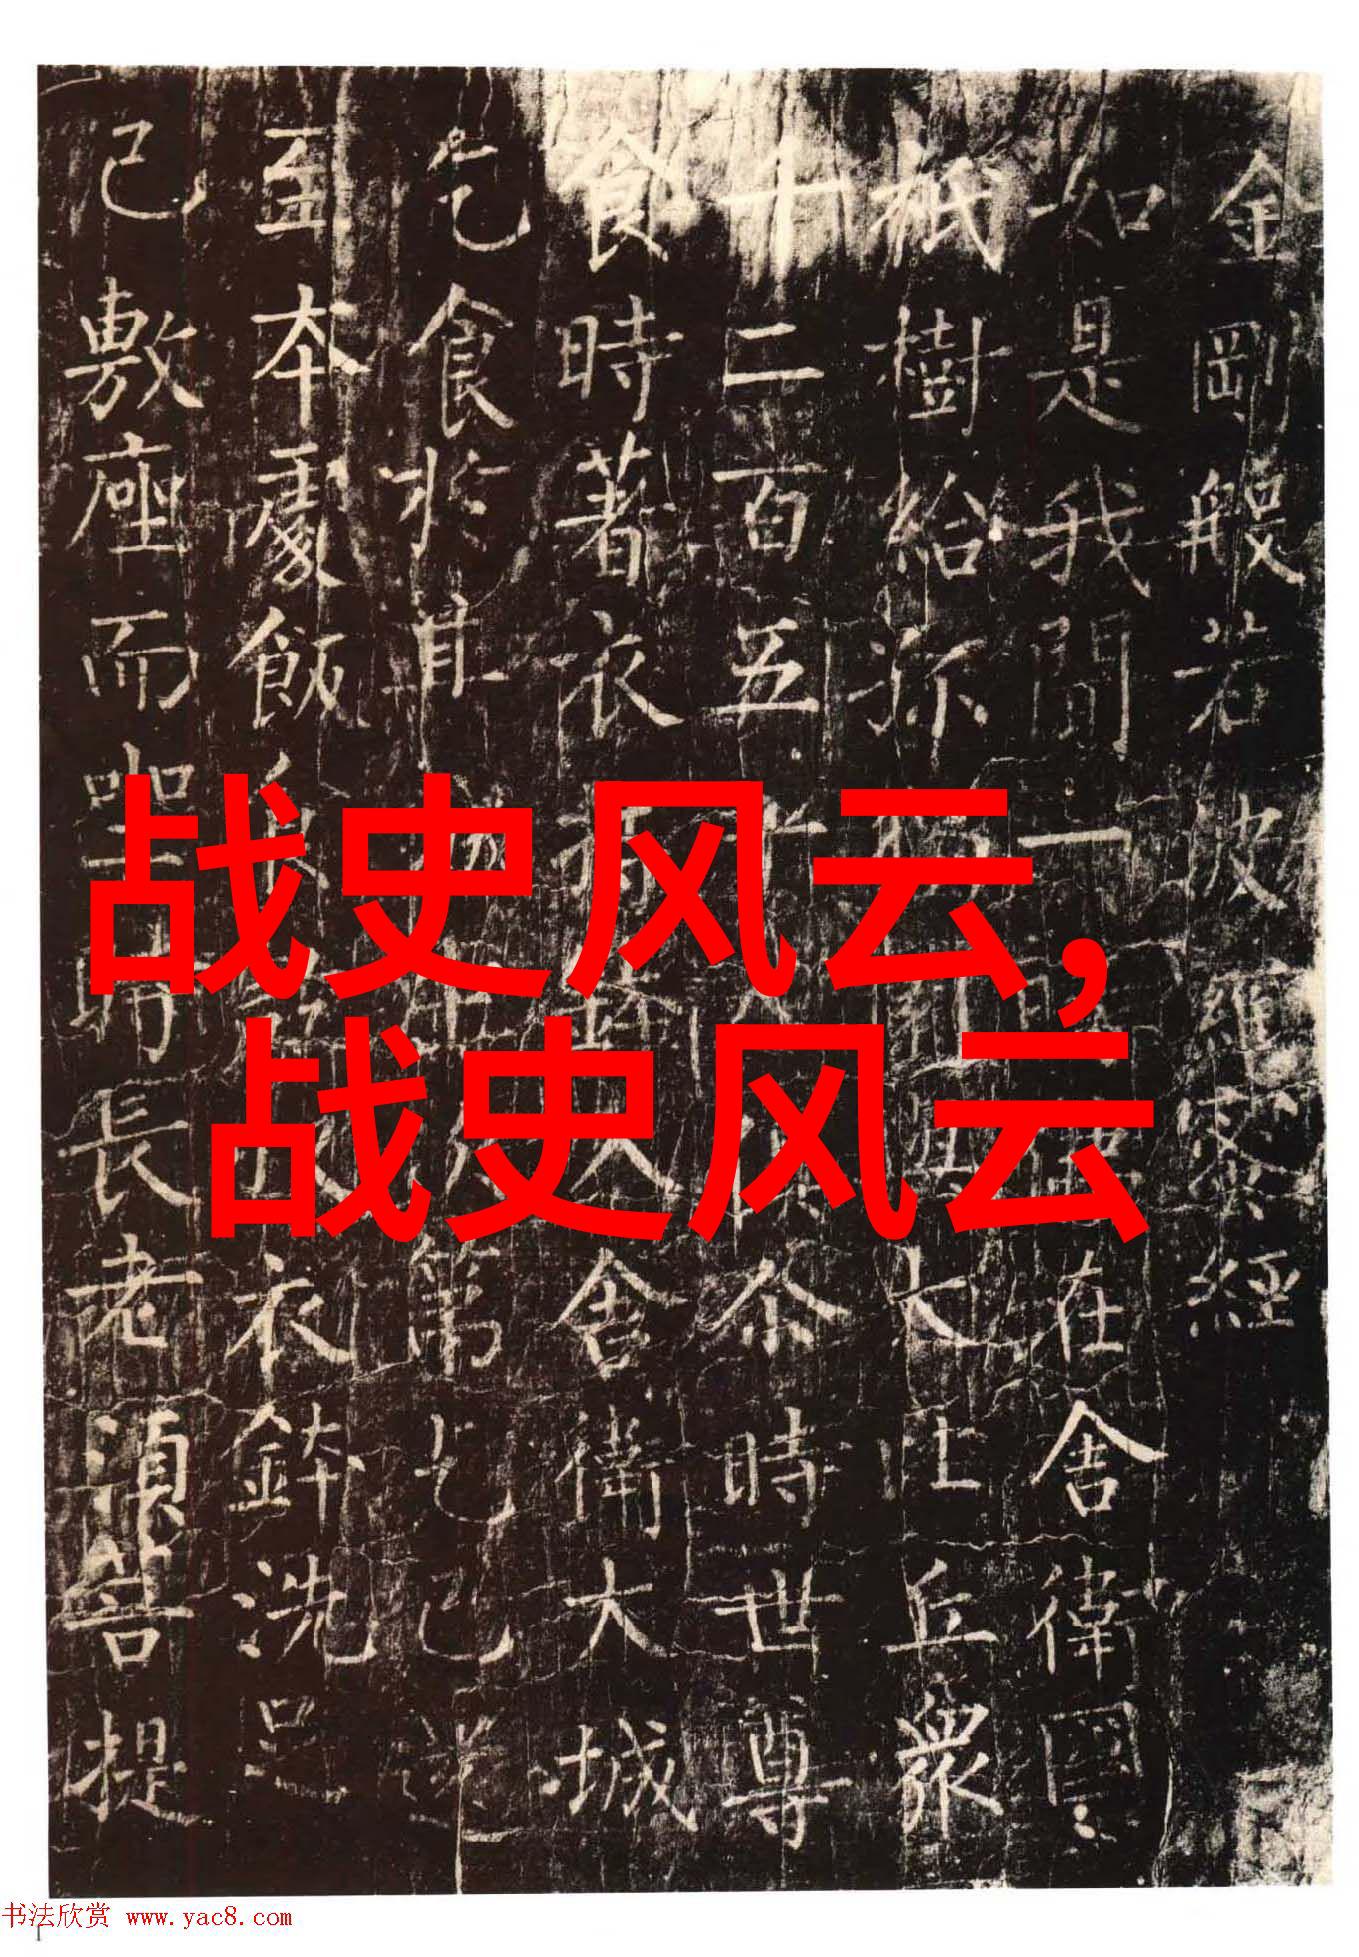 金剛般若波羅蜜經
如是我聞一時佛在舍衛國
祇樹給孤獨園與大比丘眾
十二百五十人俱尒時世尊
食時著衣持鉢入舍衛大城
乞食於其城中次第乞已還
至本處飯食訖收衣鉢洗足
已敷座而坐時長老須菩提
战史风云,
战史风云
书法欣赏 www.yac8.com